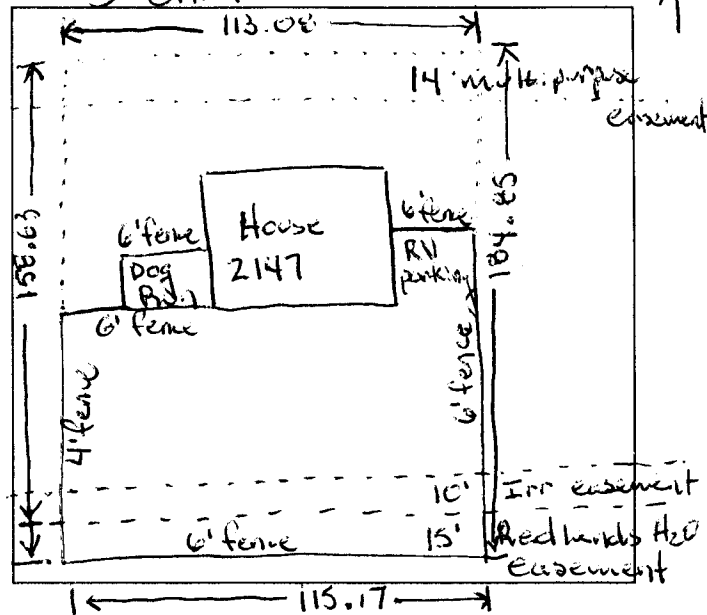 113.08
14' multi-purpose
easement
158.63
184.85
6' fence
House
2147
6' fence
RV
parking
Dog
Run
6' fence
4' fence
6' fence
10' Irr easement
6' fence
15' Redlands H2O
easement
115.17